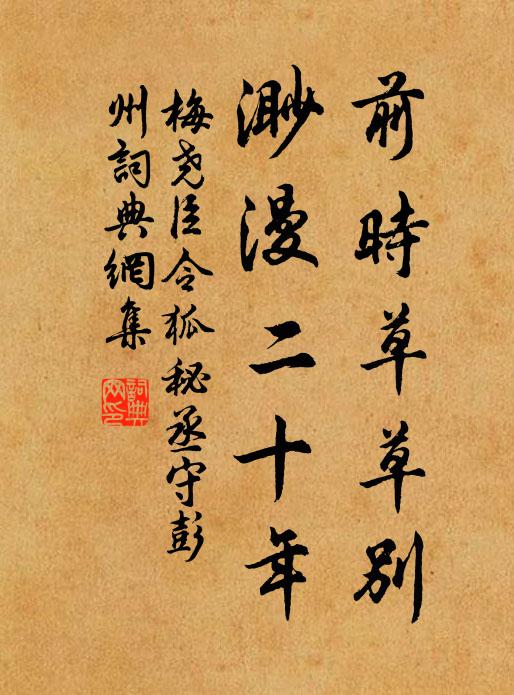 前時草草別
渺漫二十年
梅尧臣令狐秘丞守彭
州詞典網集
詞典
网印